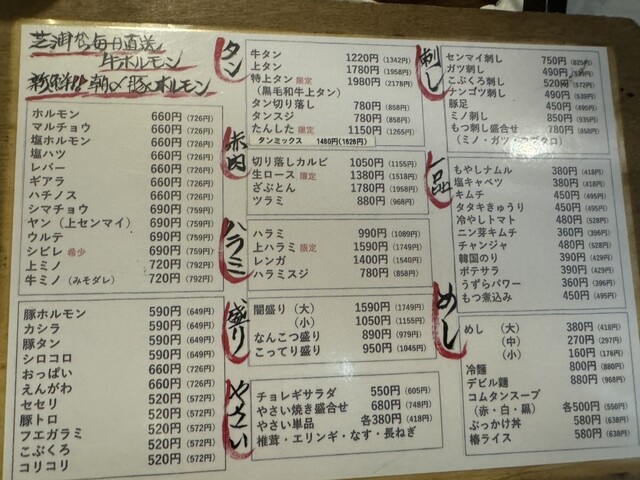 芝浦から毎日直送
牛ホルモン
新鮮!!朝〆豚ホルモン
ホルモン 660円(726円)
マルチョウ 660円(726円)
塩ホルモン 660円(726円)
塩ハツ 660円(726円)
レバー 660円(726円)
ギアラ 660円(726円)
ハチノス 660円(726円)
シマチョウ 690円(759円)
ヤン(上センマイ) 690円(759円)
ウルテ 690円(759円)
シビレ 希少 690円(759円)
上ミノ 720円(792円)
牛ミノ(みそダレ) 720円(792円)
豚ホルモン 590円(649円)
カシラ 590円(649円)
豚タン 590円(649円)
シロコロ 590円(649円)
おっぱい 660円(726円)
えんがわ 660円(726円)
セセリ 520円(572円)
豚トロ 520円(572円)
フエガラミ 520円(572円)
こぶくろ 520円(572円)
コリコリ 520円(572円)
タン
牛タン 1220円(1342円)
上タン 1780円(1958円)
特上タン 限定 1980円(2178円)
(黒毛和牛上タン)
タン切り落し 780円(858円)
タンスジ 780円(858円)
たんした 限定 1150円(1265円)
タンミックス 1480円(1628円)
赤肉
切り落しカルビ 1050円(1155円)
生ロース 限定 1380円(1518円)
ざぶとん 1780円(1958円)
ツラミ 880円(968円)
ハラミ
ハラミ 990円(1089円)
上ハラミ 限定 1590円(1749円)
レンガ 1400円(1540円)
ハラミスジ 780円(858円)
盛り
闇盛り(大) 1590円(1749円)
(小) 1050円(1155円)
なんこつ盛り 890円(979円)
こってり盛り 950円(1045円)
やさい
チョレギサラダ 550円(605円)
やさい焼き盛合せ 680円(748円)
やさい単品 各380円(418円)
椎茸・エリンギ・なす・長ねぎ
刺し
センマイ刺し 750円(825円)
ガツ刺し 490円
こぶくろ刺し 520円(572円)
ナンゴツ刺し 490円(539円)
豚足 450円(495円)
ミノ刺し 850円(935円)
もつ刺し盛合せ 780円(858円)
一品
もやしナムル 380円(418円)
塩キャベツ 380円(418円)
キムチ 450円(495円)
タタキきゅうり 450円(495円)
冷やしトマト 480円(528円)
ニン芽キムチ 360円(396円)
チャンジャ 480円(528円)
韓国のり 390円(429円)
ポテサラ 390円(429円)
うずらパワー 360円(396円)
もつ煮込み 450円(495円)
めし
めし(大) 380円(418円)
(中) 270円(297円)
(小) 160円(176円)
冷麺 800円(880円)
デビル麺 880円(968円)
コムタンスープ
(赤・白・黒) 各500円(550円)
ぶっかけ丼 580円(638円)
椿ライス 580円(638円)